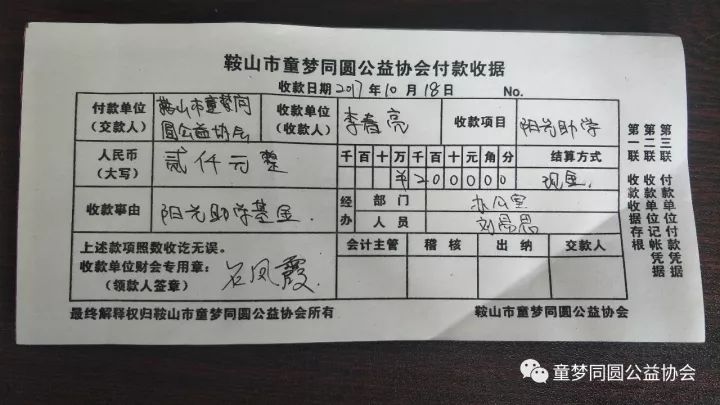 鞍山市童梦同圆公益协会付款收据
收款日期 2017 年 10 月 18 日 No.
付款单位(交款人) 鞍山市童梦同圆公益协会 收款单位(收款人) 李春亮 收款项目 阳光助学
人民币(大写) 贰仟元整 千百十万千百十元角分 ¥200000 结算方式 现金
收款事由 阳光助学基金. 经办 部门 办公室
人员
上述款项照数收讫无误。
收款单位财会专用章:
(领款人签章) 石凤霞
会计主管 稽核 出纳 交款人
最终解释权归鞍山市童梦同圆公益协会所有 鞍山市童梦同圆公益协会
第一联 收款收据存根
第二联 收款单位记帐凭据
第三联 付款单位付款凭据
童梦同圆公益协会